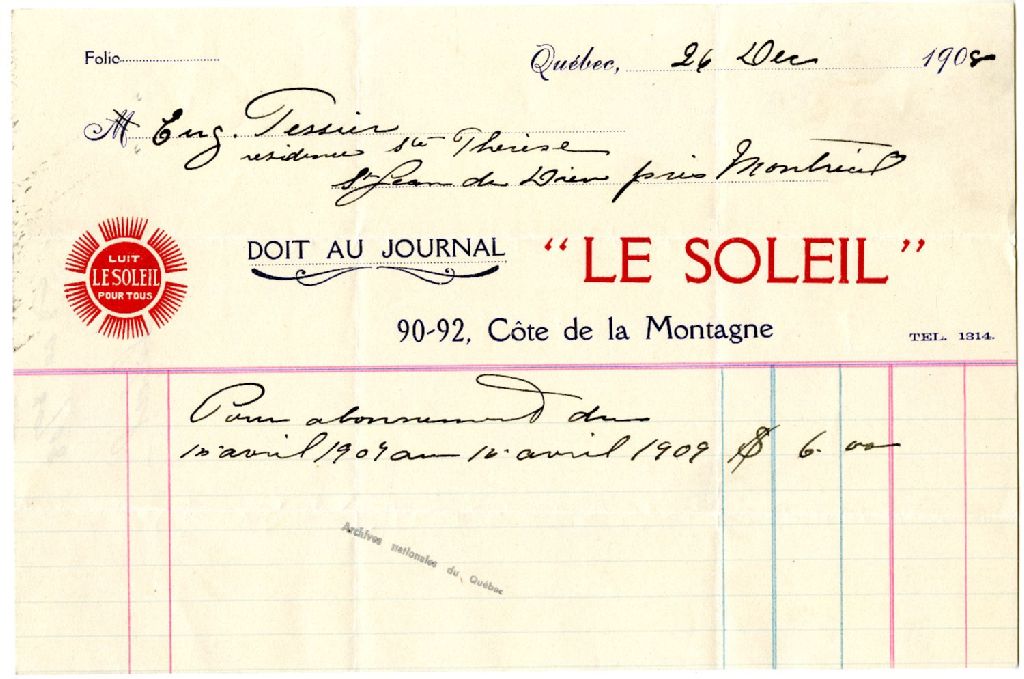 Folio
Québec, 26 Dec 1908
M Eug. Tessier
residence Ste Thérèse
St Jean de Dieu près Montréal
LUIT
LE SOLEIL
POUR TOUS
DOIT AU JOURNAL "LE SOLEIL"
90-92, Côte de la Montagne
TEL. 1314.
Pour abonnement du
avril 1907 au avril 1909 $ 6.00
Archives nationales du Québec